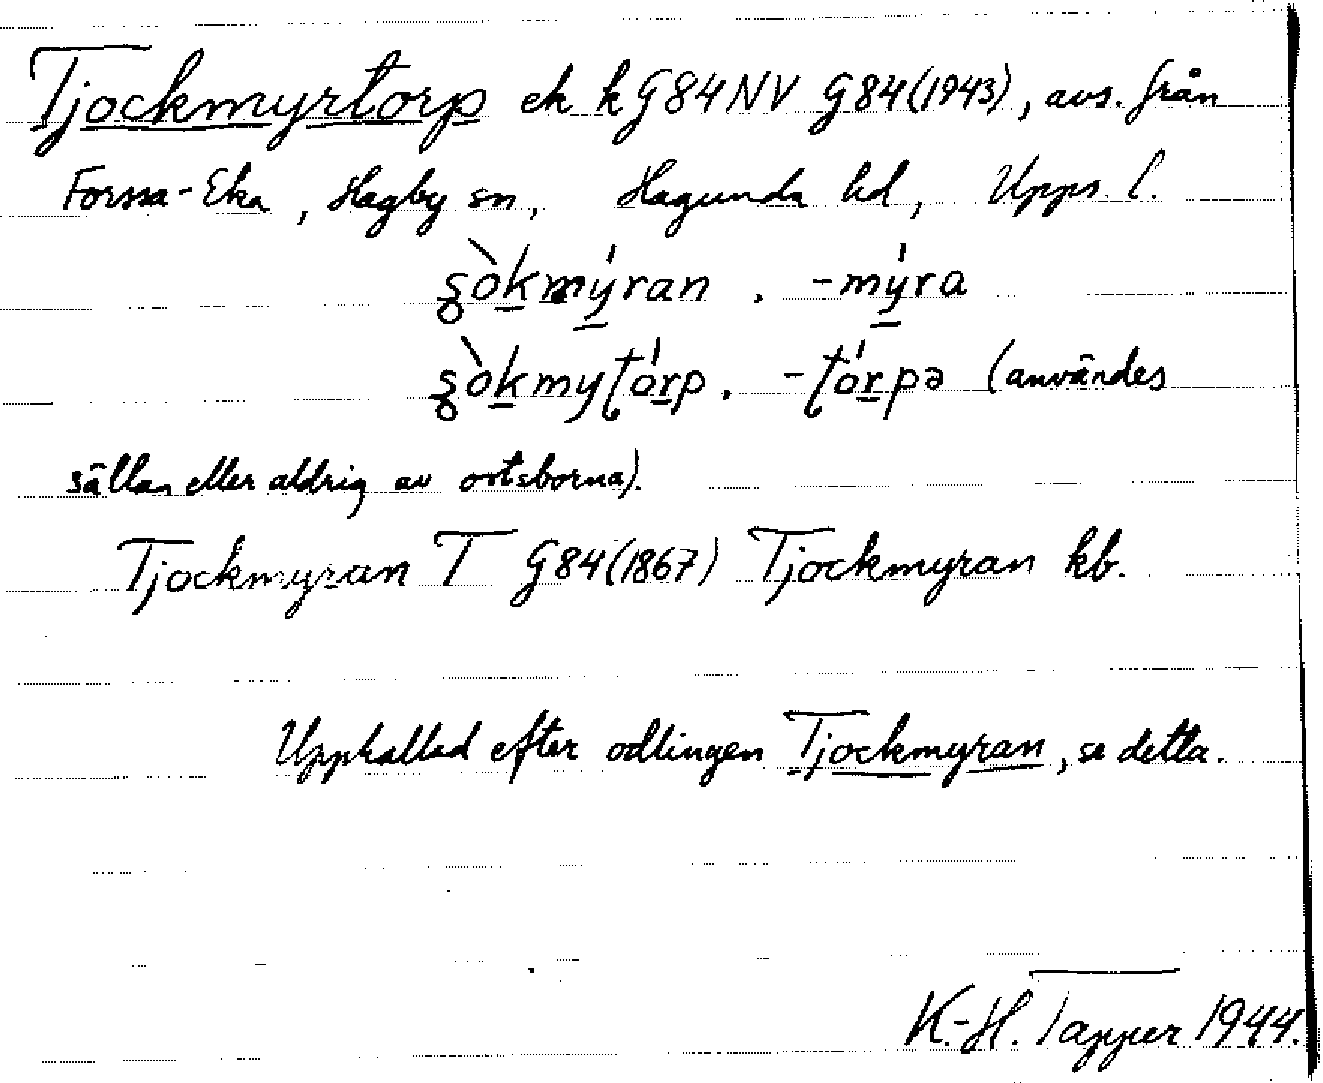 Tjockmyrtorp ek k G84NV G84(1943), avs. från
Forssa-Eka, Hagby sn, Hagunda hd, Upps. l.
ʂòkmýran, -mýra
ʂòkmyʈórp, -ʈórpə (användes
sällan eller aldrig av ortsborna).
Tjockmyran T G84(1867) Tjockmyran kb.
Uppkallad efter odlingen Tjockmyran, se detta.
K.-H. Tapper 1944.